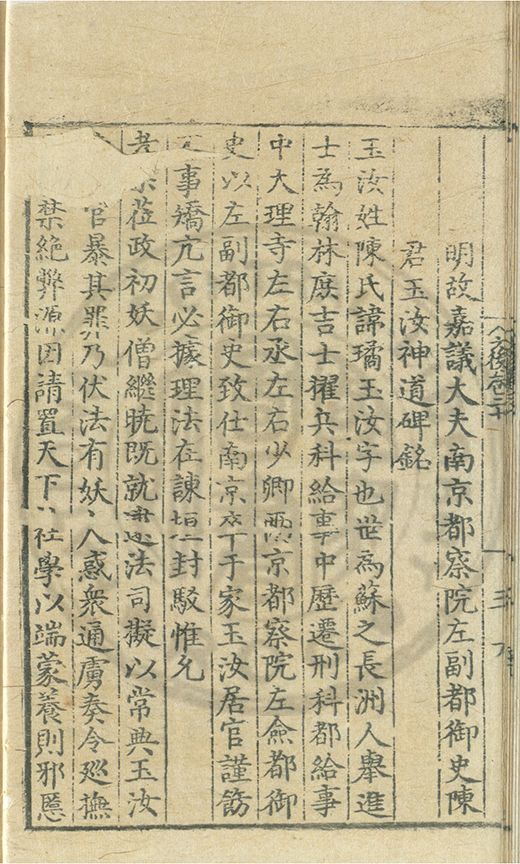 明故嘉議大夫南京都察院左副都御史陳
君玉汝神道碑銘
玉汝姓陳氏諱璚玉汝字也世為蘇之長洲人舉進
士為翰林庶吉士擢兵科給事中歷遷刑科都給事
中大理寺左右丞左右少卿南京都察院左僉都御
史以左副都御史致仕南京卒于家玉汝居官謹飭
事矯亢言必據理法在諫垣封駁惟允
孝宗蒞政初妖僧繼曉既就逮法司擬以常典玉汝
官暴其罪乃伏法有妖人惑衆通虜奏令廵撫
禁絶弊源因請置天下社學以端蒙養則邪慝